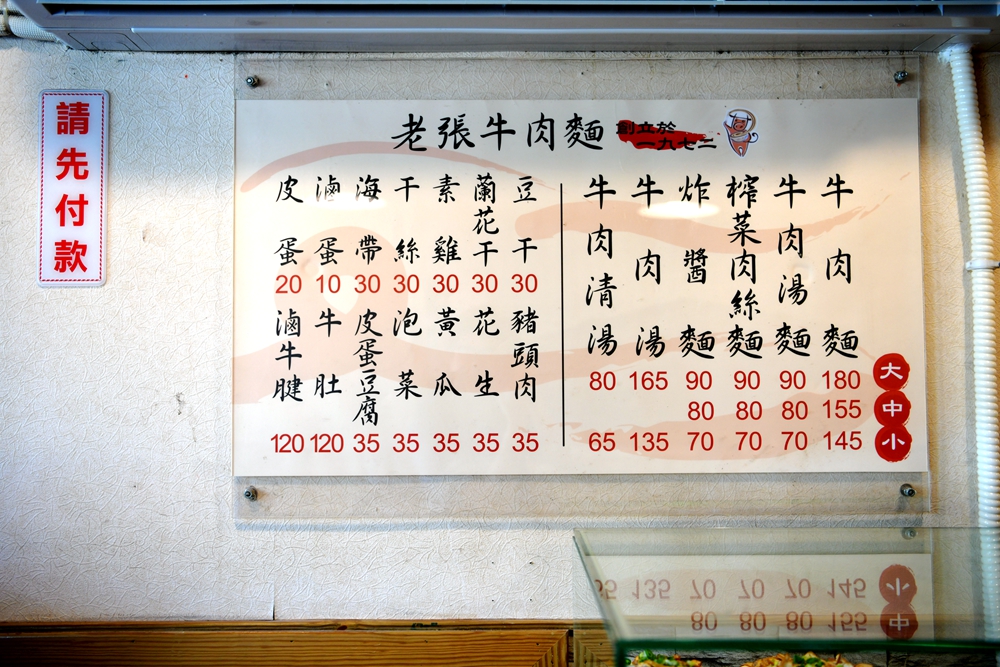 請先付款
老張牛肉麵
創立於
一九七二
牛肉麵 180 155 145
牛肉湯麵 90 80 70
榨菜肉絲麵 90 80 70
炸醬麵 90 80 70
牛肉湯 165 135
牛肉清湯 80 65
大
中
小
豆干 30
蘭花干 30
素雞 30
干絲 30
海帶 30
滷蛋 10
皮蛋 20
豬頭肉 35
花生 35
黃瓜 35
泡菜 35
皮蛋豆腐 35
牛肚 120
滷牛腱 120